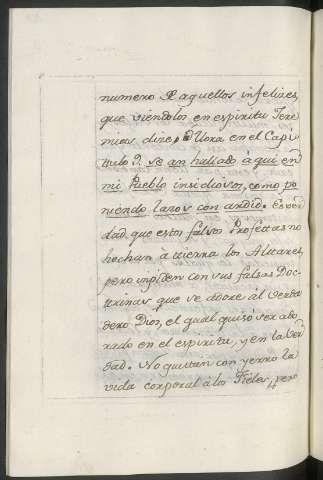 numero de aquellos infelizes,
que viendolos en espiritu Jere
mias dize, Vlora en el Capi
tulo 2. se an hallado à qui en
mi Pueblo insidiosos, como po
niendo lazos con ardid. Es ver
dad, que estos falsos Profettas no
hechan à tierra los Alttares,
pero inpiden con sus falsas Doc
ttrinas que se adore àl verda
dero Dios, el qual quisó ser ado
rado en el espiritu, y en la ver
dad. No quitan con yerro la
vida corporal à los Fieles, pero